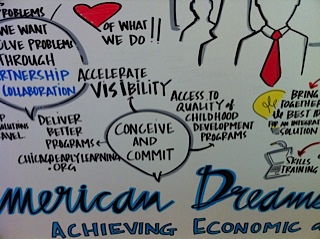 PROBLEMS
WE WANT
SOLVE PROBLEMS
THROUGH
PARTNERSHIP
COLLABORATION
OF WHAT
WE DO!!
ACCELERATE
VISIBILITY
DELIVER
BETTER
PROGRAMS
CHICAGOEARLYLEARNING
.ORG
CONCEIVE
AND
COMMIT
ACCESS TO
QUALITY of
CHILDHOOD
DEVELOPMENT
PROGRAMS
BRING
TOGETHER
BEST ID
FOR AN INTEGRA
SOLUTION
SKILLS
TRAINING
American Dreams
ACHIEVING ECONOMIC a